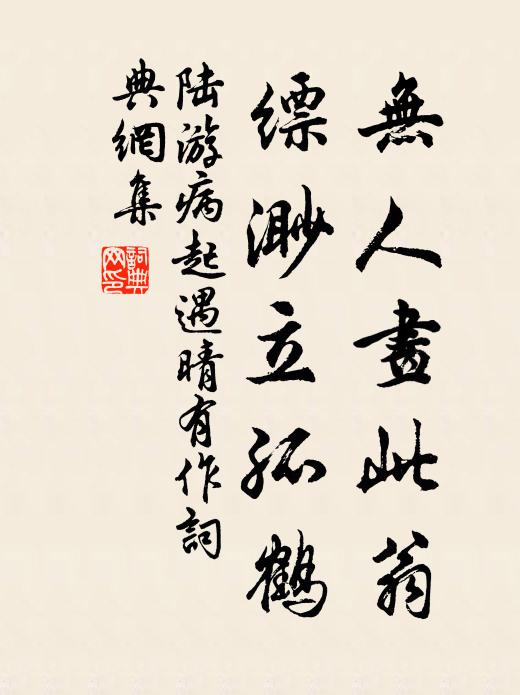 無人畫此翁
縹渺立孤鶴
陸游病起遇晴有作詞
典網集
詞典
网印